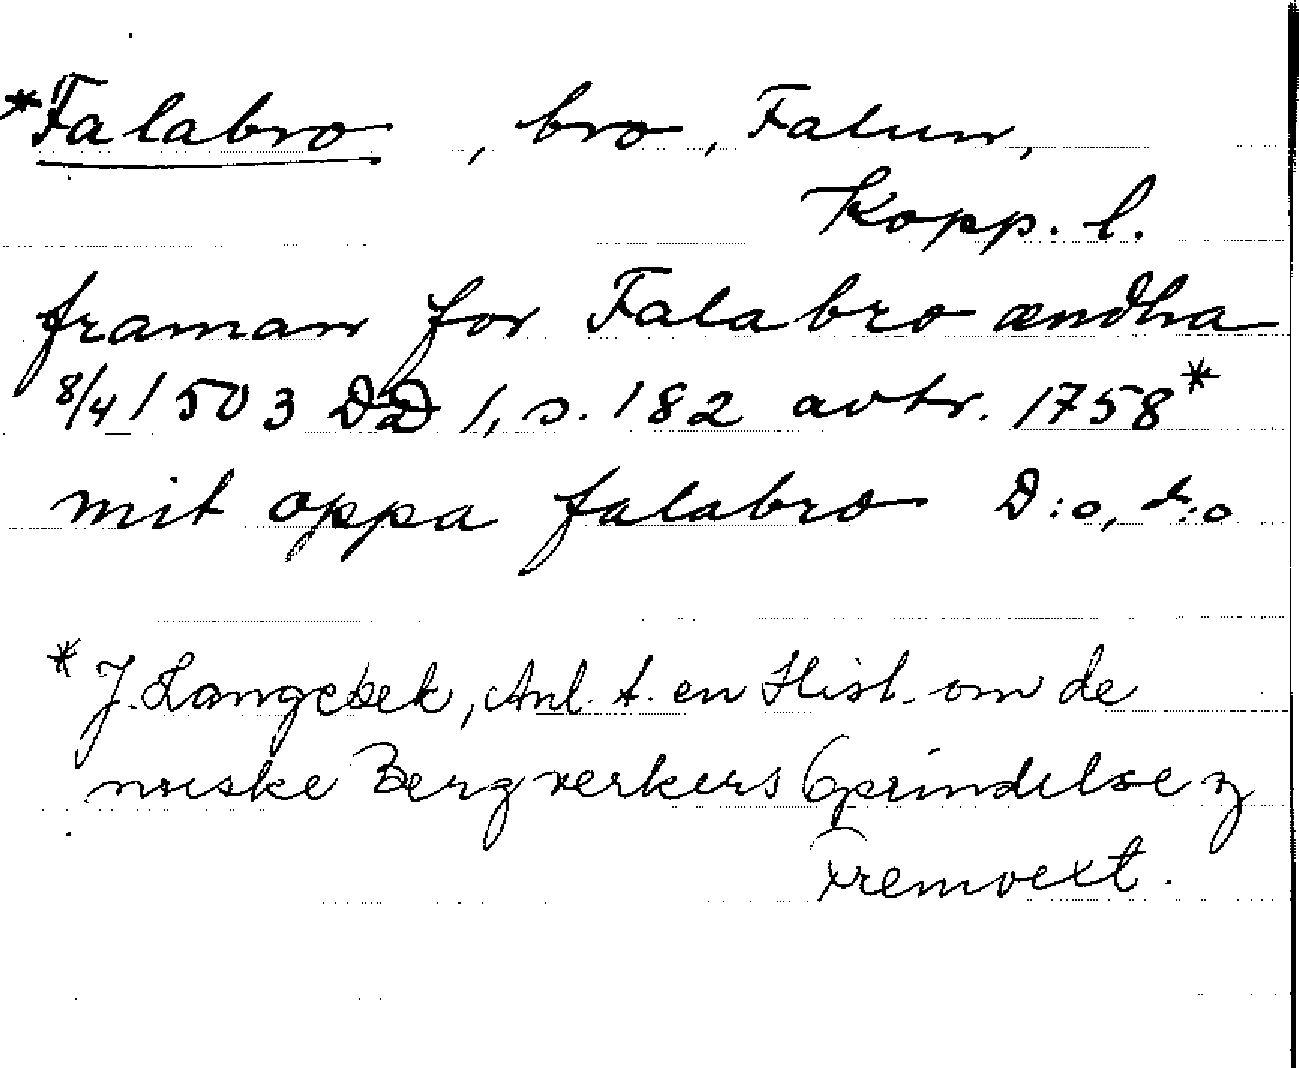 *Falabro, bro, Falun,
Kopp. l.
framan for Falabro ændha
8/4 1503 DD 1, s. 182 avtr. 1758*
mit oppa falabro D:o, d:o
* J. Langebek, Anl. t. en Hist. om de
norske Bergverkers Oprindelse og
Fremvext.